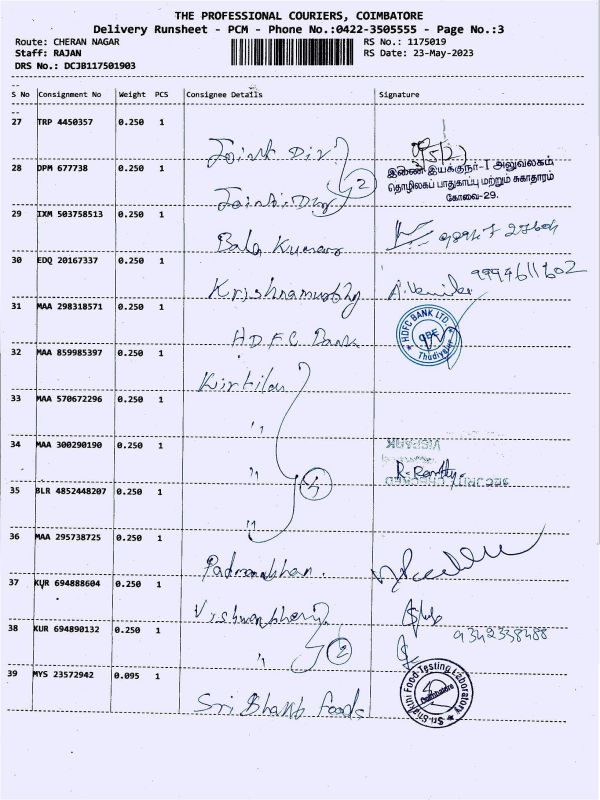 THE PROFESSIONAL COURIERS, COIMBATORE
Delivery Runsheet - PCM - Phone No.:0422-3505555 - Page No.:3
Route: CHERAN NAGAR
RS No.: 1175019
Staff: RAJAN
RS Date: 23-May-2023
DRS No.: DCJB117501903
S No Consignment No Weight PCS Consignee Details Signature
27 TRP 4450357 0.250 1
Joint Dir
28 DPM 677738 0.250 1
இணை இயக்குநர்-I அலுவலகம்
தொழிலகப் பாதுகாப்பு மற்றும் சுகாதாரம்
கோவை-29.
2
29 IXM 503758513 0.250 1
Bala Kumar
30 EDQ 20167337 0.250 1
Krishnamurthy 9994611602
31 MAA 298318571 0.250 1
HDFC Bank
HDFC BANK LTD
Thudiyalur
32 MAA 859985397 0.250 1
Kirtilan
33 MAA 570672296 0.250 1
"
34 MAA 300290190 0.250 1
"
35 BLR 4852448207 0.250 1
"
36 MAA 295738725 0.250 1
Padmanabhan.
37 KUR 694888604 0.250 1
38 KUR 694890132 0.250 1
9342338488
" 2
39 MYS 23572942 0.095 1
Sri Bhakt foods
Sri Sakthi Food Testing Laboratory
Coimbatore